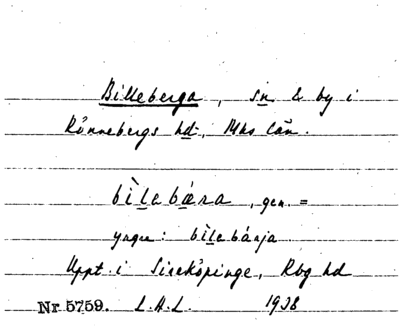 Billeberga, sn & by i
Rönnebergs hd, Mhs län.
bìlebæra, gen. =
yngre: bìlebárja
Uppt. i Sireköpinge, Rbg hd
Nr 5759. L.H.L. 1938